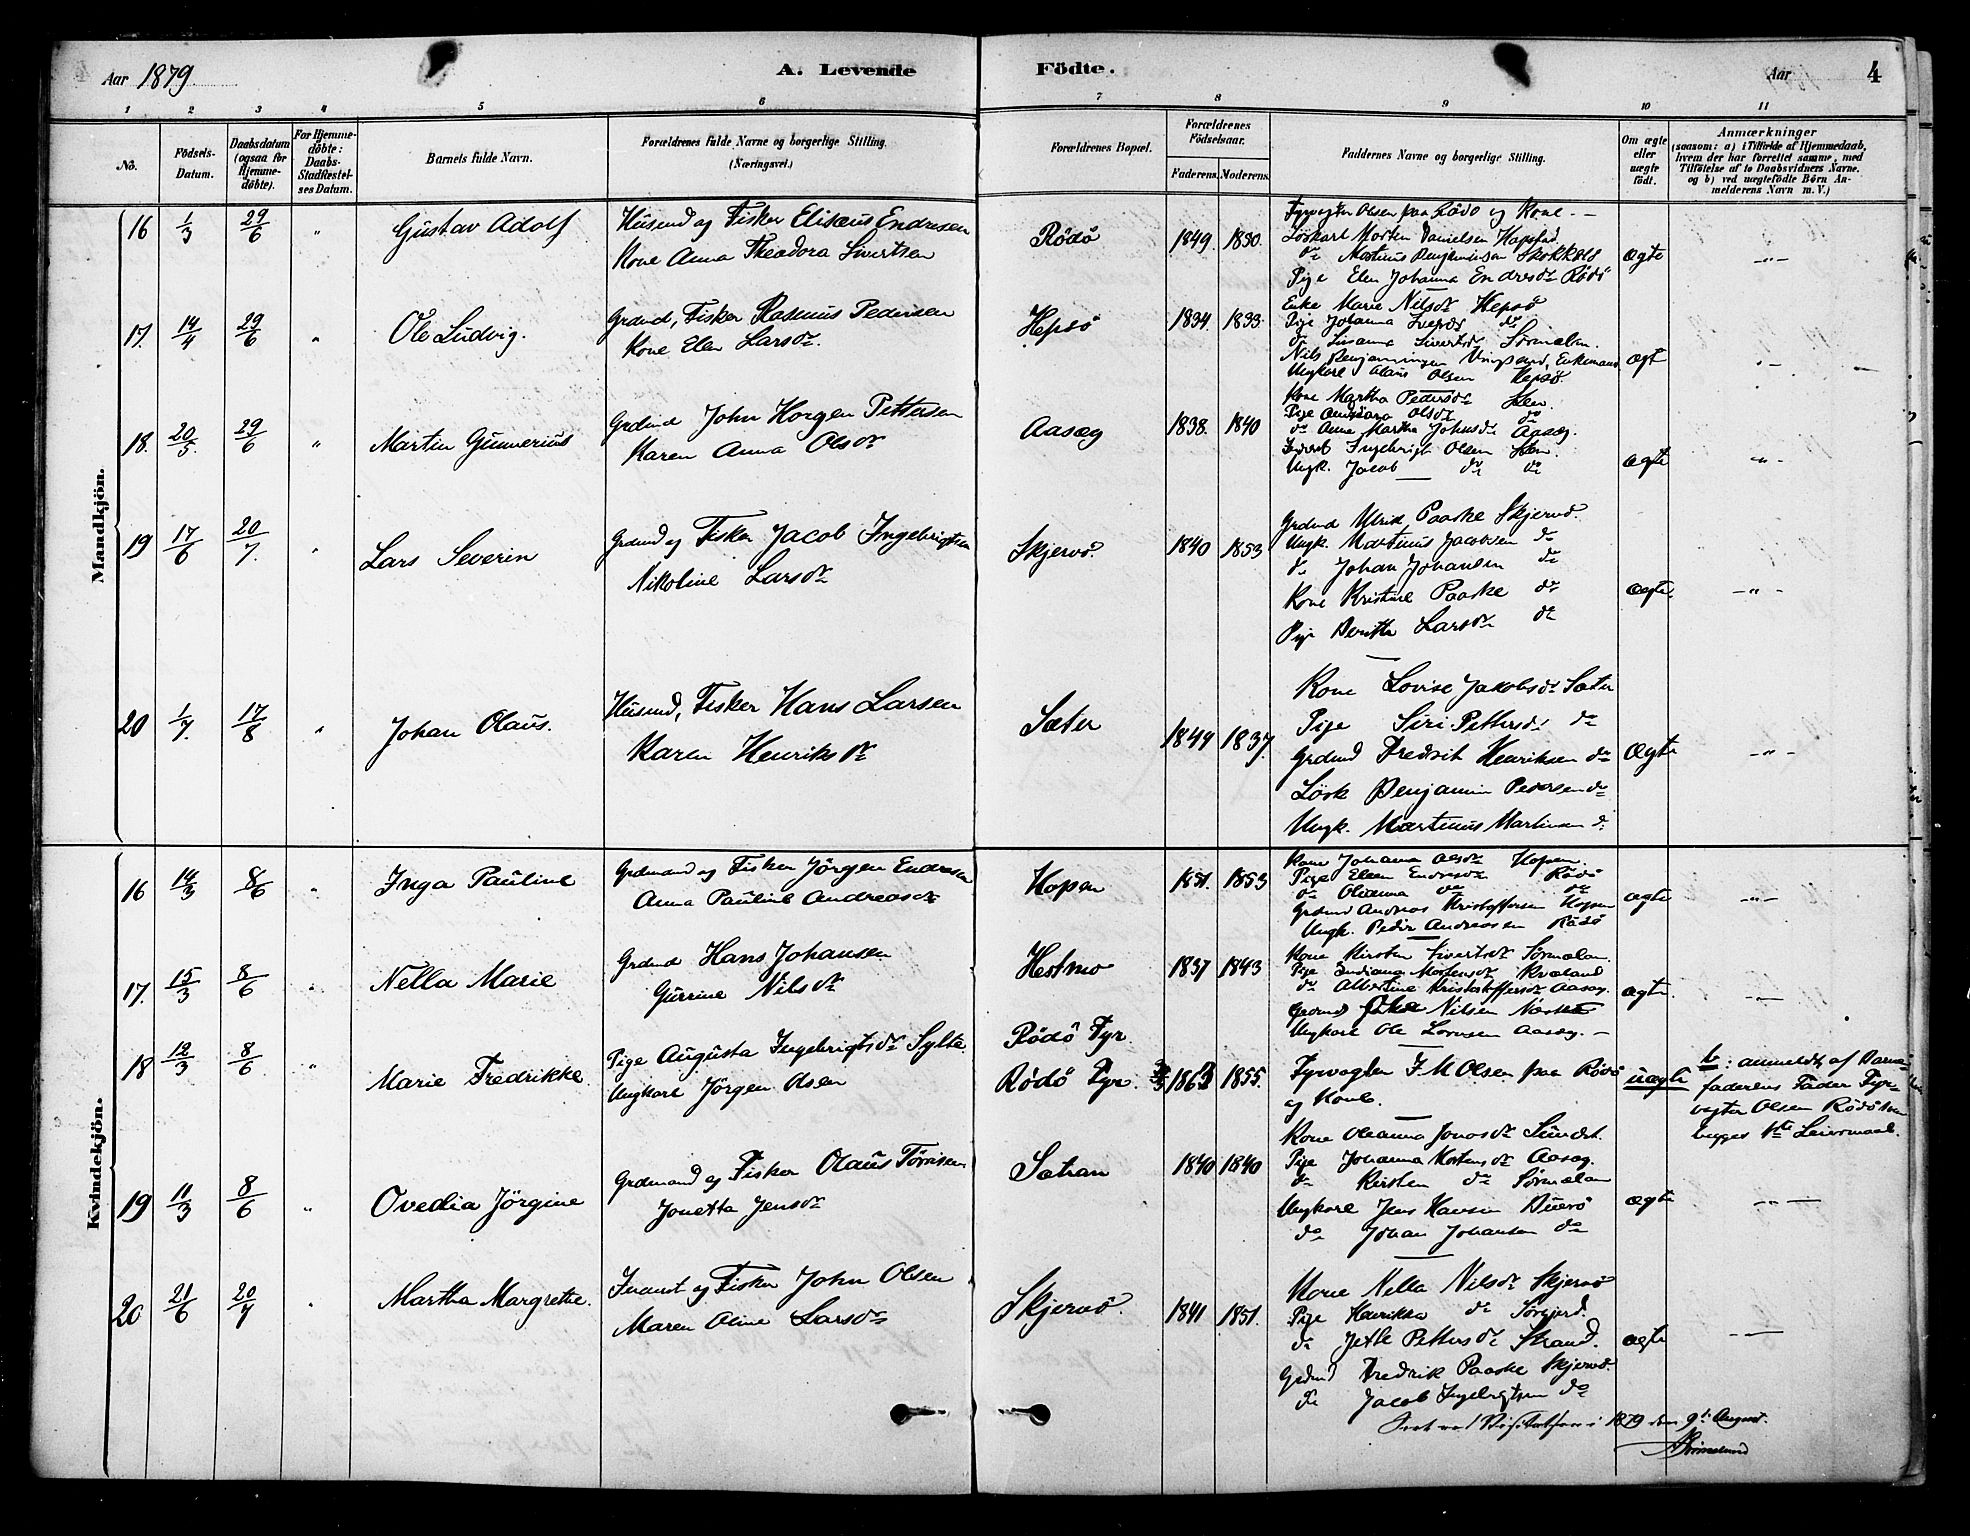 Aar 1879
A. Levende
Födte.
Aar
4
1 2 3 4 5 6 7 8 9 10 11
No.
Födsels-
Datum.
Daabsdatum
(ogsaa for
Hjemme-
döbte).
For Hjemme-
döbte:
Daabs-
Stadfæstel-
ses Datum.
Barnets fulde Navn.
Forældrenes fulde Navne og borgerlige Stilling.
(Næringsvei.)
Forældrenes Bopæl.
Forældrenes
Födselsaar.
Faderens. Moderens.
Faddernes Navne og borgerlige Stilling.
Om ægte
eller
uægte
födt.
Anmærkninger
(saasom: a) i Tilfælde af Hjemmedaab,
hvem der har forrettet samme, med
Tilföielse af to Daabsvidners Navne.
og b) ved uægtefödte Börn An-
melderens Navn m. V.)
Mandkjön.
16 1/3 29/6 " Gustav Adolf
Husmd og Fisker Elisæus Endresen
Kone Anna Theodora Sivertsen
Rödö 1849. 1850.
Fyrvogter Olsen paa Rödö og Kone. -
Löskarl Morten Danielsen Hopstad
do Martinus Benjaminsen
Pige Elen Johanna Endresdr Rödö
Ægte - " -
17. 14/4 29/6 " Ole Ludvig.
Grdmd, Fisker Rasmus Pedersen
Kone Elen Larsdr.
Hepsö 1834. 1833.
Enke Marie Nilsdr Hepsö
Pige Johanna do
do Susanna Sivertsdr Sörmælan.
Nils Benjaminsen Vingsand, Enkemand
Ungkarl Olaus Olsen Hepsö.
Ægt
18. 20/5 29/6 " Martin Gunnerius
Grdmd John Horgen Pettersen
Karen Anna Olsdr
Aasæg 1838. 1840
Kone Martha Pedersdr Hen.
Pige Olsdr do
do Anna Martha Johnsdr Aasæg.
Inderst Ingebrigt Olsen Hen.
Ungk. Jacob do do
Ægte - " -
19 17/6 20/7. " Lars Severin
Grdmd og Fisker Jacob Ingebrigtsen
Nikoline Larsdr
Skjervö. 1840 1853
Grdmd Ulrik Paaske Skjervö.
Ungk. Martinus Jacobsen do
do Johan Johansen do
Kone Kristine Paaske do
Pige Beritte Larsdr do
Ægte. - " -
20 1/7. 17/8 " Johan Olaus.
Husmd, Fisker Hans Larsen
Karen Henriksdr
Sæter 1844 1837.
Kone Lovise Jakobsdr Sæter
Pige Siri Pettersdr do
Grdmd Fredrik Henriksen do
Lösk Benjamin Pedersen do
Ungk. Martinus Martinsen do
Ægte - " -
Kvindekjön.
16 14/3 8/6 " Inga Pauline
Grdmand og Fisker Jörgen Endresen
Anna Pauline Andreasdr
Hopen 1851. 1853
Kone Johanna Olsdr Hopen.
Pige Elen Endresdr Rödö
do Olianna do do
Grdmd Andreas Kristoffersen Hopen
Ungk. Peder Andreassen Rödö
Ægte - " -
17. 15/3 8/6 " Nella Marie
Grdmd Hans Johansen
Gurrine Nilsdr
Hestmo 1837 1843
Kone Kirsten Sivertsdr Sörmælan.
Pige Indiana Mortensdr Kvæland
do Albertine Kristoffersdr Aasæg.
Grdmd Nilsen
Ungkarl Ole Aasæg. -
Ægte. - " -
18 12/3 8/6 " Marie Fredrikke.
Pige Augusta Ingebrigtsdr Sylte.
Ungkarl Jörgen Olsen
Rödö Fyr.
Rödö Fyr. 1855.
Fyrvogter J M Olsen paa Rödö
og Kone.
uægte
b: anmeldt af Barne-
faderens Fader Fyr-
vogter Olsen Rödö
begges 1ste Leiermaal.
19 11/3 8/6 " Ovedia Jörgine
Grdmand og Fisker Olaus Törrisen
Jonetta Jensdr
Sætran 1840 1840
Kone Oleanna Jonasdr Sundet.
Pige Johanna Mortensdr Aasæg.
do Kirsten do Sörmælan
Ungkarl Jens Hansen Buerö
do Johan Johansen do
Ægte - " -
20 21/6 20/7 " Martha Margrethe.
Inderst og Fisker John Olsen
Maren Oline Larsdr
Skjervö. 1841 1851.
Kone Nella Nilsdr Skjervö
Pige Henrikka do Sörgjerd.
do Jette Pettersdr Strand.
Grdmd Fredrik Paaske Skjervö
do Jacob Ingebrigtsen do
Ægte - " -
Seet ved Visitatsen i 1879 den 9de August.